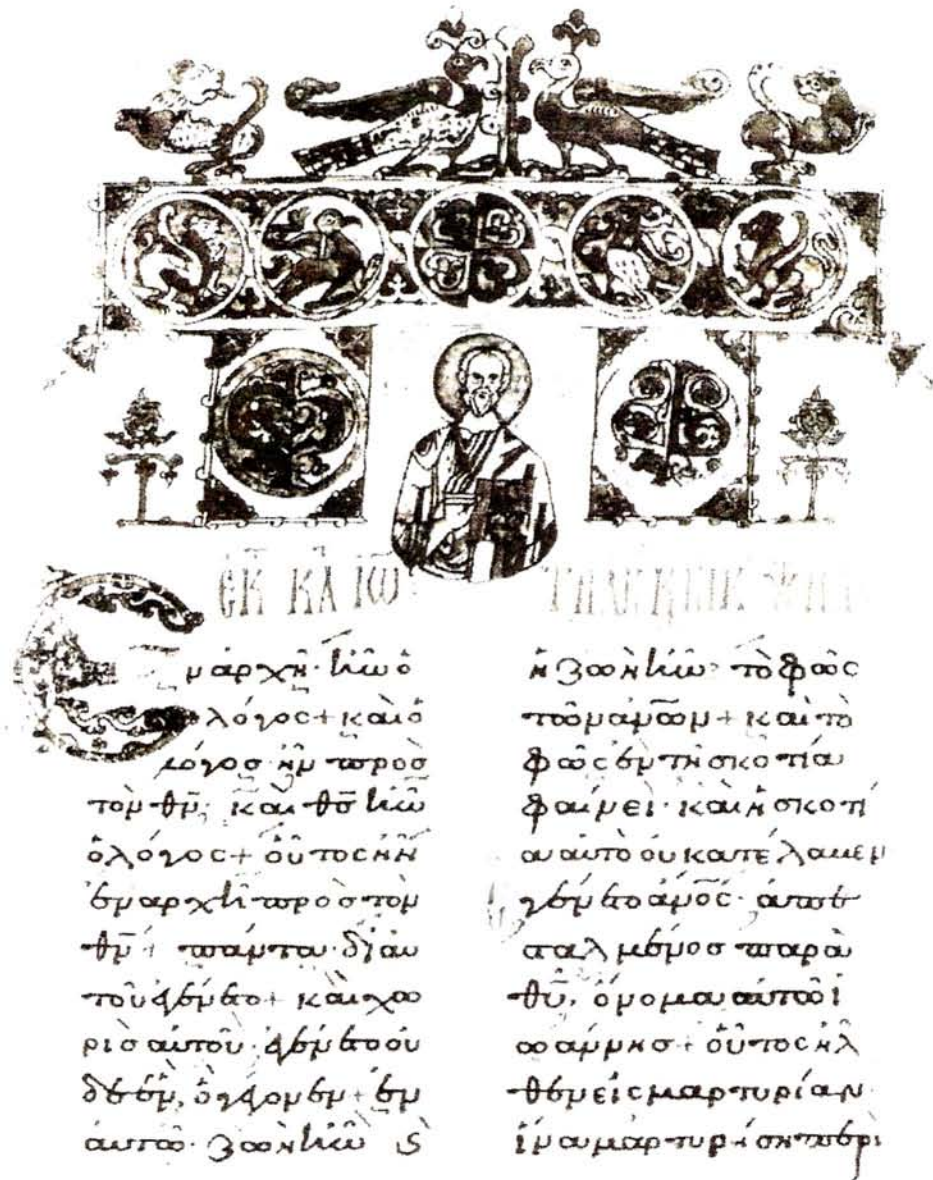 ΕΚ ΚΑ ΙΩ
Ε
ν ἀρχῆ· ἦν ὁ
λόγος + καὶ ὁ
λόγος ἦν πρὸς
τὸν θν̄· καὶ θς̄ ἦν
ὁ λόγος + οὗτος ἦν
ἐν ἀρχῆ πρὸς τὸν
θν̄ + πάντα δἰ αυ
τοῦ ἐγένετο + καὶ χω
ρὶς αὐτοῦ ἐγένετο οὐ
δὲ ἕν, ὃ γέγονεν + ἐν
αὐτῶ ζωὴ ἦν
ἡ ζωὴ ἦν τὸ φῶς
τῶν ἀν̄ων + καὶ τὸ
φῶς ἐν τῆ σκοτία
φαίνει· καὶ ἡ σκοτί
α αὐτὸ οὐ κατέλαβεν
ἐγένετο ἀν̄ος· ἀπε
σταλμένος παρὰ
θῦ, ὄνομα αὐτῶ ἰ
ωάννης + οὗτος ἦλ
θεν εἰς μαρτυρίαν
ἵνα μαρτυρήση περὶ